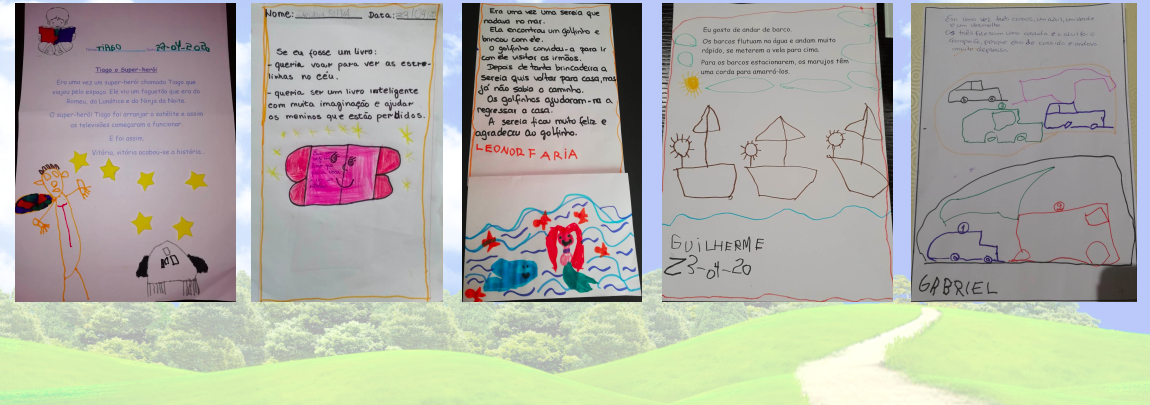 Nome: TIAGO Data: 29-04-2020
Tiago o Super-herói
Era uma vez um super-herói chamado Tiago que
viajou pelo espaço. Ele viu um foguetão que era do
Romeu, da Lunática e do Ninja da Noite.
O super-herói Tiago foi arranjar o satélite e assim
as televisões começaram a funcionar.
E foi assim.
Vitória, vitória acabou-se a história...
Nome: Data:
Se eu fosse um livro:
- queria voar para ver as estre-
linhas no céu.
- queria ser um livro inteligente
com muita imaginação e ajudar
os meninos que estão perdidos.
Era uma vez uma sereia que
nadava no mar.
Ela encontrou um golfinho e
brincou com ele.
O golfinho convidou-a para ir
com ele visitar os irmãos.
Depois de tanta brincadeira a
sereia quis voltar para casa, mas
já não sabia o caminho.
Os golfinhos ajudaram-na a
regressar a casa.
A sereia ficou muito feliz e
agradeceu ao golfinho.
LEONOR FARIA
Eu gosto de andar de barco.
Os barcos flutuam na água e andam muito
rápido, se meterem a vela para cima.
Para os barcos estacionarem, os marujos têm
uma corda para amarrá-los.
GUILHERME
23-04-20
Era uma vez três carros, um azul, um verde
e um vermelho.
1
GABRIEL